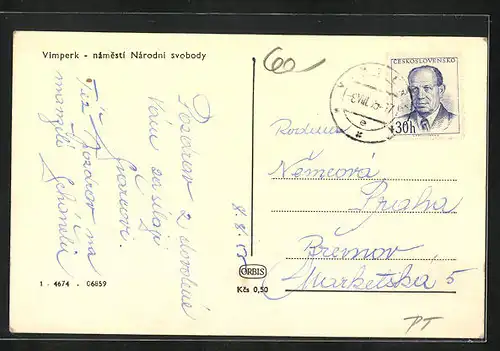 Vimperk - náměstí Národní svobody
Pozdrav z dovolené
Vám zasílají
Též pozdrav na
8. 8. 1
ORBIS
Kčs 0,50
1 - 4674 - 06859
60
ČESKOSLOVENSKO
30h
Rodina
Němcová
Praha
Břevnov
Markétská 5
PT